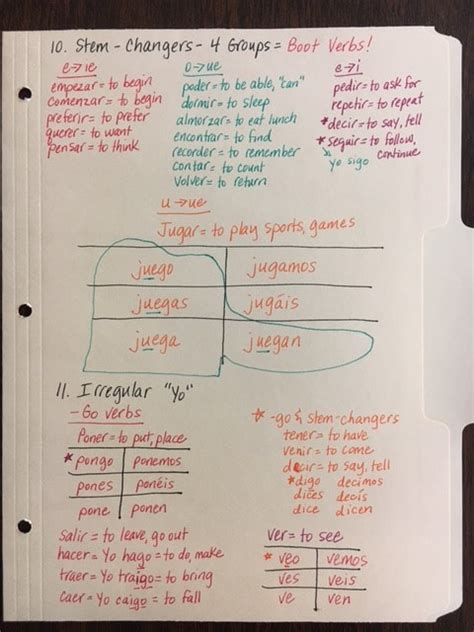 10. Stem-Changers - 4 Groups = Boot Verbs!
e→ie
empezar = to begin
comenzar = to begin
preferir = to prefer
querer = to want
pensar = to think
o→ue
poder = to be able, "can"
dormir = to sleep
almorzar = to eat lunch
encontrar = to find
recorder = to remember
contar = to count
volver = to return
e→i
pedir = to ask for
repetir = to repeat
*decir = to say, tell
*seguir = to follow, continue
↳ Yo sigo
u→ue
Jugar = to play sports, games
juego jugamos
juegas jugáis
juega juegan
11. Irregular "Yo"
-Go verbs
Poner = to put, place
*pongo ponemos
pones ponéis
pone ponen
Salir = to leave, go out
hacer = Yo hago = to do, make
traer = Yo traigo = to bring
caer = Yo caigo = to fall
* -go & stem-changers
tener = to have
venir = to come
decir = to say, tell
*digo decimos
dices decís
dice dicen
Ver = to see
*veo vemos
ves veis
ve ven